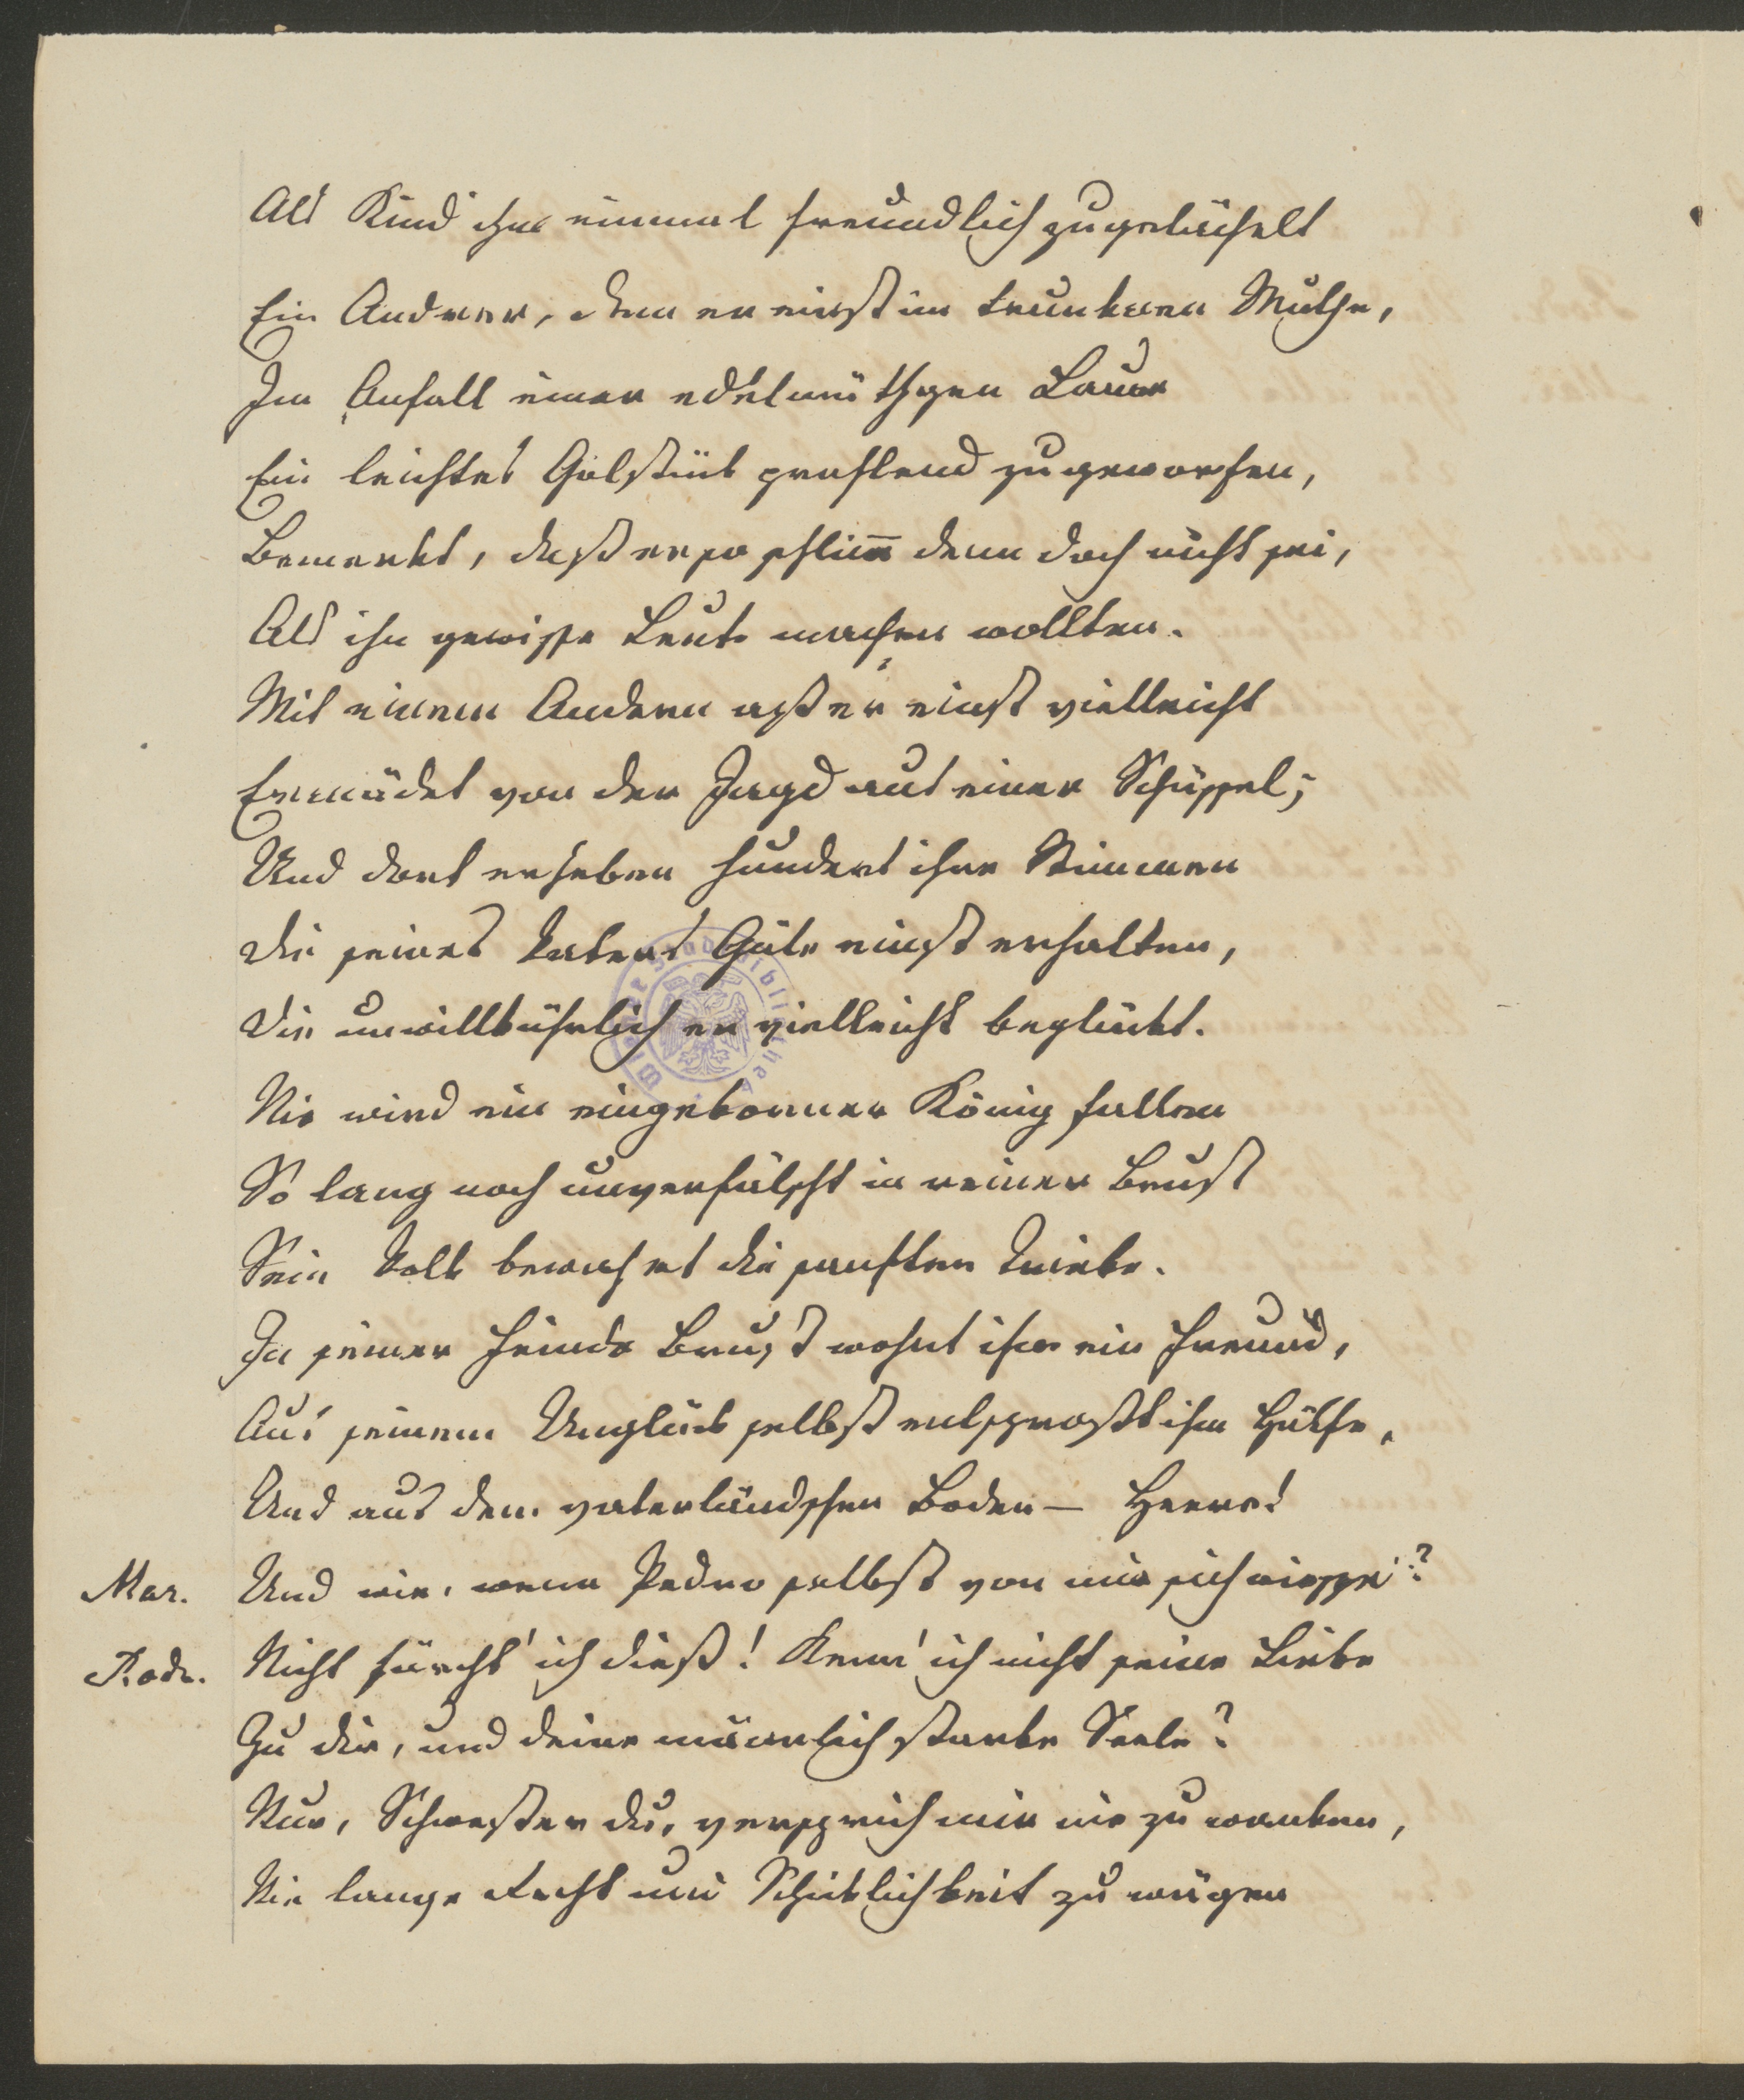 Als Kind ihm einmal freundlich zugelächelt
Ein Andrer, dem er einst im trunknen Muthe,
Im Anfall einer edelmüthgen Laune
Ein leichtes Golstück prahlend zugeworfen,
Bemerkt, daß er so schlim̅ denn doch nicht sei,
Als ihn gewisse Leute machen wollten.
Mit einem Andern aß er einst vielleicht
Ermüdet von der Jagd aus einer Schüssel;
Und dort erheben hundert ihre Stimmen
Die seines Vaters Güte einst erhalten,
Die unwillkührlich er vielleicht beglückt.
Nie wird ein eingeborner König fallen
So lang noch unverfälscht in reiner Brust
Sein Volk bewahret die sanften Triebe.
In seiner Feinde Brust wohnt ihm ein Freund,
Aus seinem Unglück selbst entsproßt ihm Hülfe,
Und aus dem vaterländschen Boden — Heere!
Mar. Und wie, wenn Pedro selbst von mir sich riesse?
Rodr. Nicht fürcht' ich dieß! Kenn' ich nicht seine Liebe
Zu dir, und deine männlich starke Seele?
Nur, Schwester du, versprich mir nie zu wanken,
Nie lange Recht und Schicklichkeit zu wägen